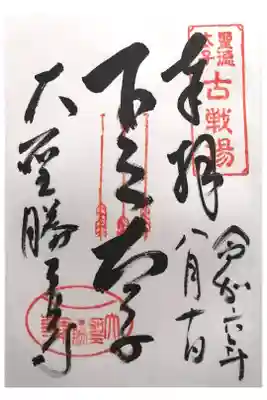 聖徳
太子
古戦場
奉拝
令和六年
八月十日
下之太子
大聖勝軍寺